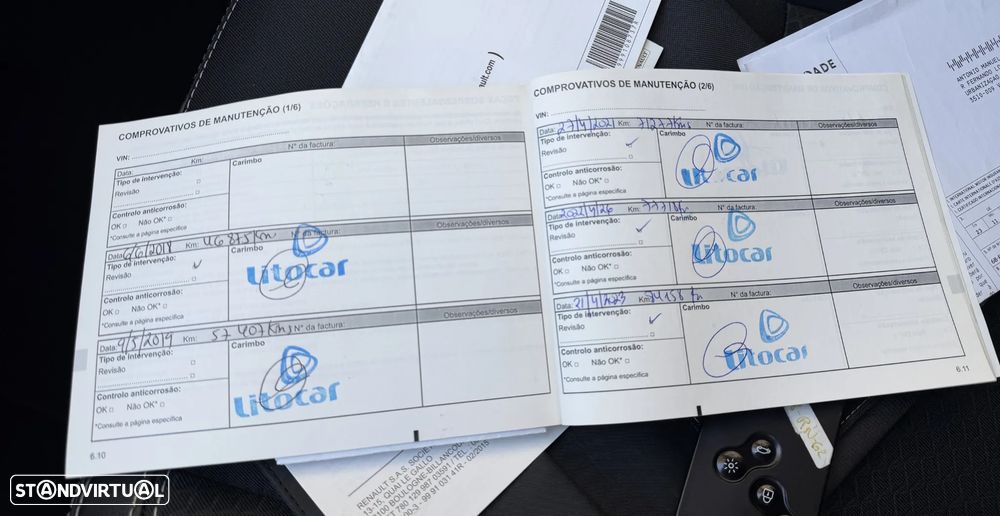 COMPROVATIVOS DE MANUTENÇÃO (1/6)
VIN:
Data: Km: N° da factura: Observações/diversos
Tipo de intervenção: Carimbo
Revisão
Controlo anticorrosão:
OK Não OK*
*Consulte a página específica
Data: 6/6/2018 Km: 46875Km N° da factura: Observações/diversos
Tipo de intervenção: Carimbo
Revisão
Litocar
Controlo anticorrosão:
OK Não OK*
*Consulte a página específica
Data: 9/5/2019 Km: 57407Kms N° da factura: Observações/diversos
Tipo de intervenção: Carimbo
Revisão
Litocar
Controlo anticorrosão:
OK Não OK*
*Consulte a página específica
6.10
COMPROVATIVOS DE MANUTENÇÃO (2/6)
VIN:
Data: 27/4/2021 Km: 71277Kms N° da factura: Observações/diversos
Tipo de intervenção: Carimbo
Revisão
Litocar
Controlo anticorrosão:
OK Não OK*
*Consulte a página específica
Data: 2022/4/26 Km: N° da factura: Observações/diversos
Tipo de intervenção: Carimbo
Revisão
Litocar
Controlo anticorrosão:
OK Não OK*
*Consulte a página específica
Data: 21/4/2023 Km: N° da factura: Observações/diversos
Tipo de intervenção: Carimbo
Revisão
Litocar
Controlo anticorrosão:
OK Não OK*
*Consulte a página específica
6.11
ult.com
DADE
ANTONIO MANUEL
R FERNANDO LO
URBANIZAÇÃO
3510-009 V
RENAULT S.A.S. SOCIÉT
13-15, QUAI LE GALLO
100 BOULOGNE-BILLANCOU
T 780 129 987 03591 / TÉL
00-3 - 99 91 031 41R - 02/2015
STANDVIRTUAL